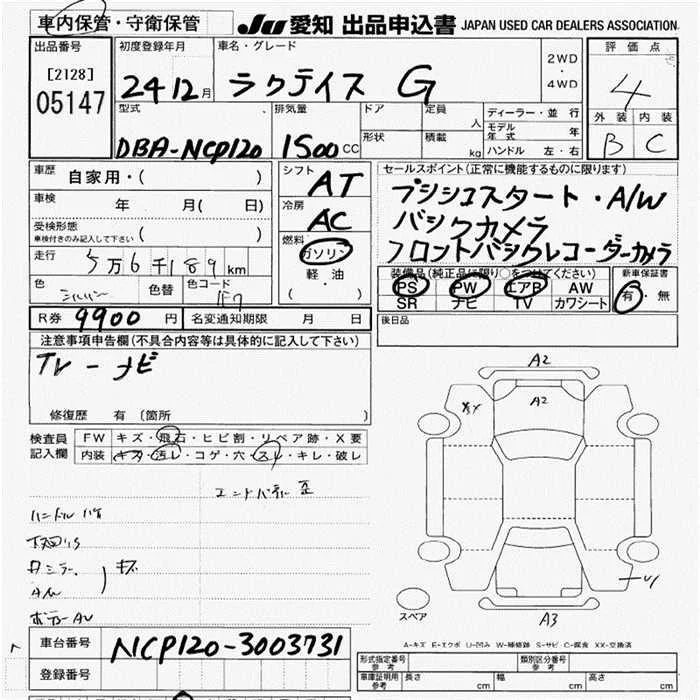 車内保管・守衛保管
JU 愛知 出品申込書 JAPAN USED CAR DEALERS ASSOCIATION
出品番号
[2128]
05147
初度登録年月
24 12 月
車名・グレード
ラクティス G
2WD
・
4WD
評価点
4
外装 内装
B C
型式
DBA-NCP120
排気量
1500 CC
ドア
形状
定員
人
積載
kg
ディーラー・並行
モデル年式 年
ハンドル 左・右
車歴
自家用・( )
車検
年 月( 日)
受検形態
車検付きのみ記入して下さい ( )
走行
5万6千189 km
色
シルバー
色替
色コード
1F7
シフト
AT
冷房
AC
燃料
ガソリン
軽・油
( ・ )
セールスポイント(正常に機能するものに限ります)
プシュスタート・A/W
バックカメラ
フロントバックレコーダーカメラ
装備品(純正品に限り○をつけてください)
PS PW エアB AW
SR ナビ TV カワシート
新車保証書
有・無
R券 9900 円
名変通知期限 月 日
後日品
注意事項申告欄(不具合内容等は具体的に記入して下さい)
TV ー ナビ
修復歴 有 〔箇所 〕
検査員
記入欄
FW キズ・飛石・ヒビ割・リペア跡・X要
内装 キズ・汚レ・コゲ・穴・スレ・キレ・破レ
ハンドル
下回りS
ミラー
A/W
キズ
A2
A2
A3
スペア
A-キズ E-エクボ U-凹み W-補修跡 S-サビ C-腐食 XX-交換済
車台番号
NCP120-3003731
登録番号
形式指定番号
参考
類別区分番号
参考
車庫証明用
参考
長さ cm
幅 cm
高さ cm